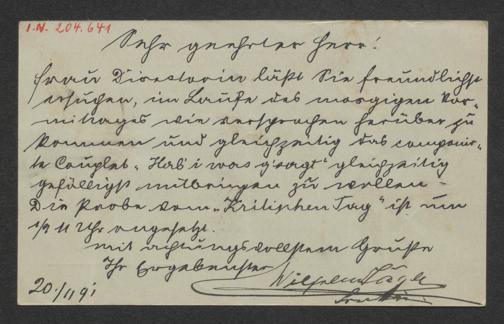 I.N. 204.641
Sehr geehrter Herr!
Frau Directorin läßt Sie freundlichst
ersuchen, im Laufe des morgigen Vor-
mittages wie versprochen herüber zu
kommen und gleichzeitig das componir-
te Couplet „Hab' i was g'sagt" gleichzeitig
gefälligst mitbringen zu wollen –
Die Probe vom „Kritischen Tag" ist um
1/2 11 Uhr angesetzt.
mit achtungsvollstem Gruße
Ihr Ergebenster
Wilhelm
20./11 91